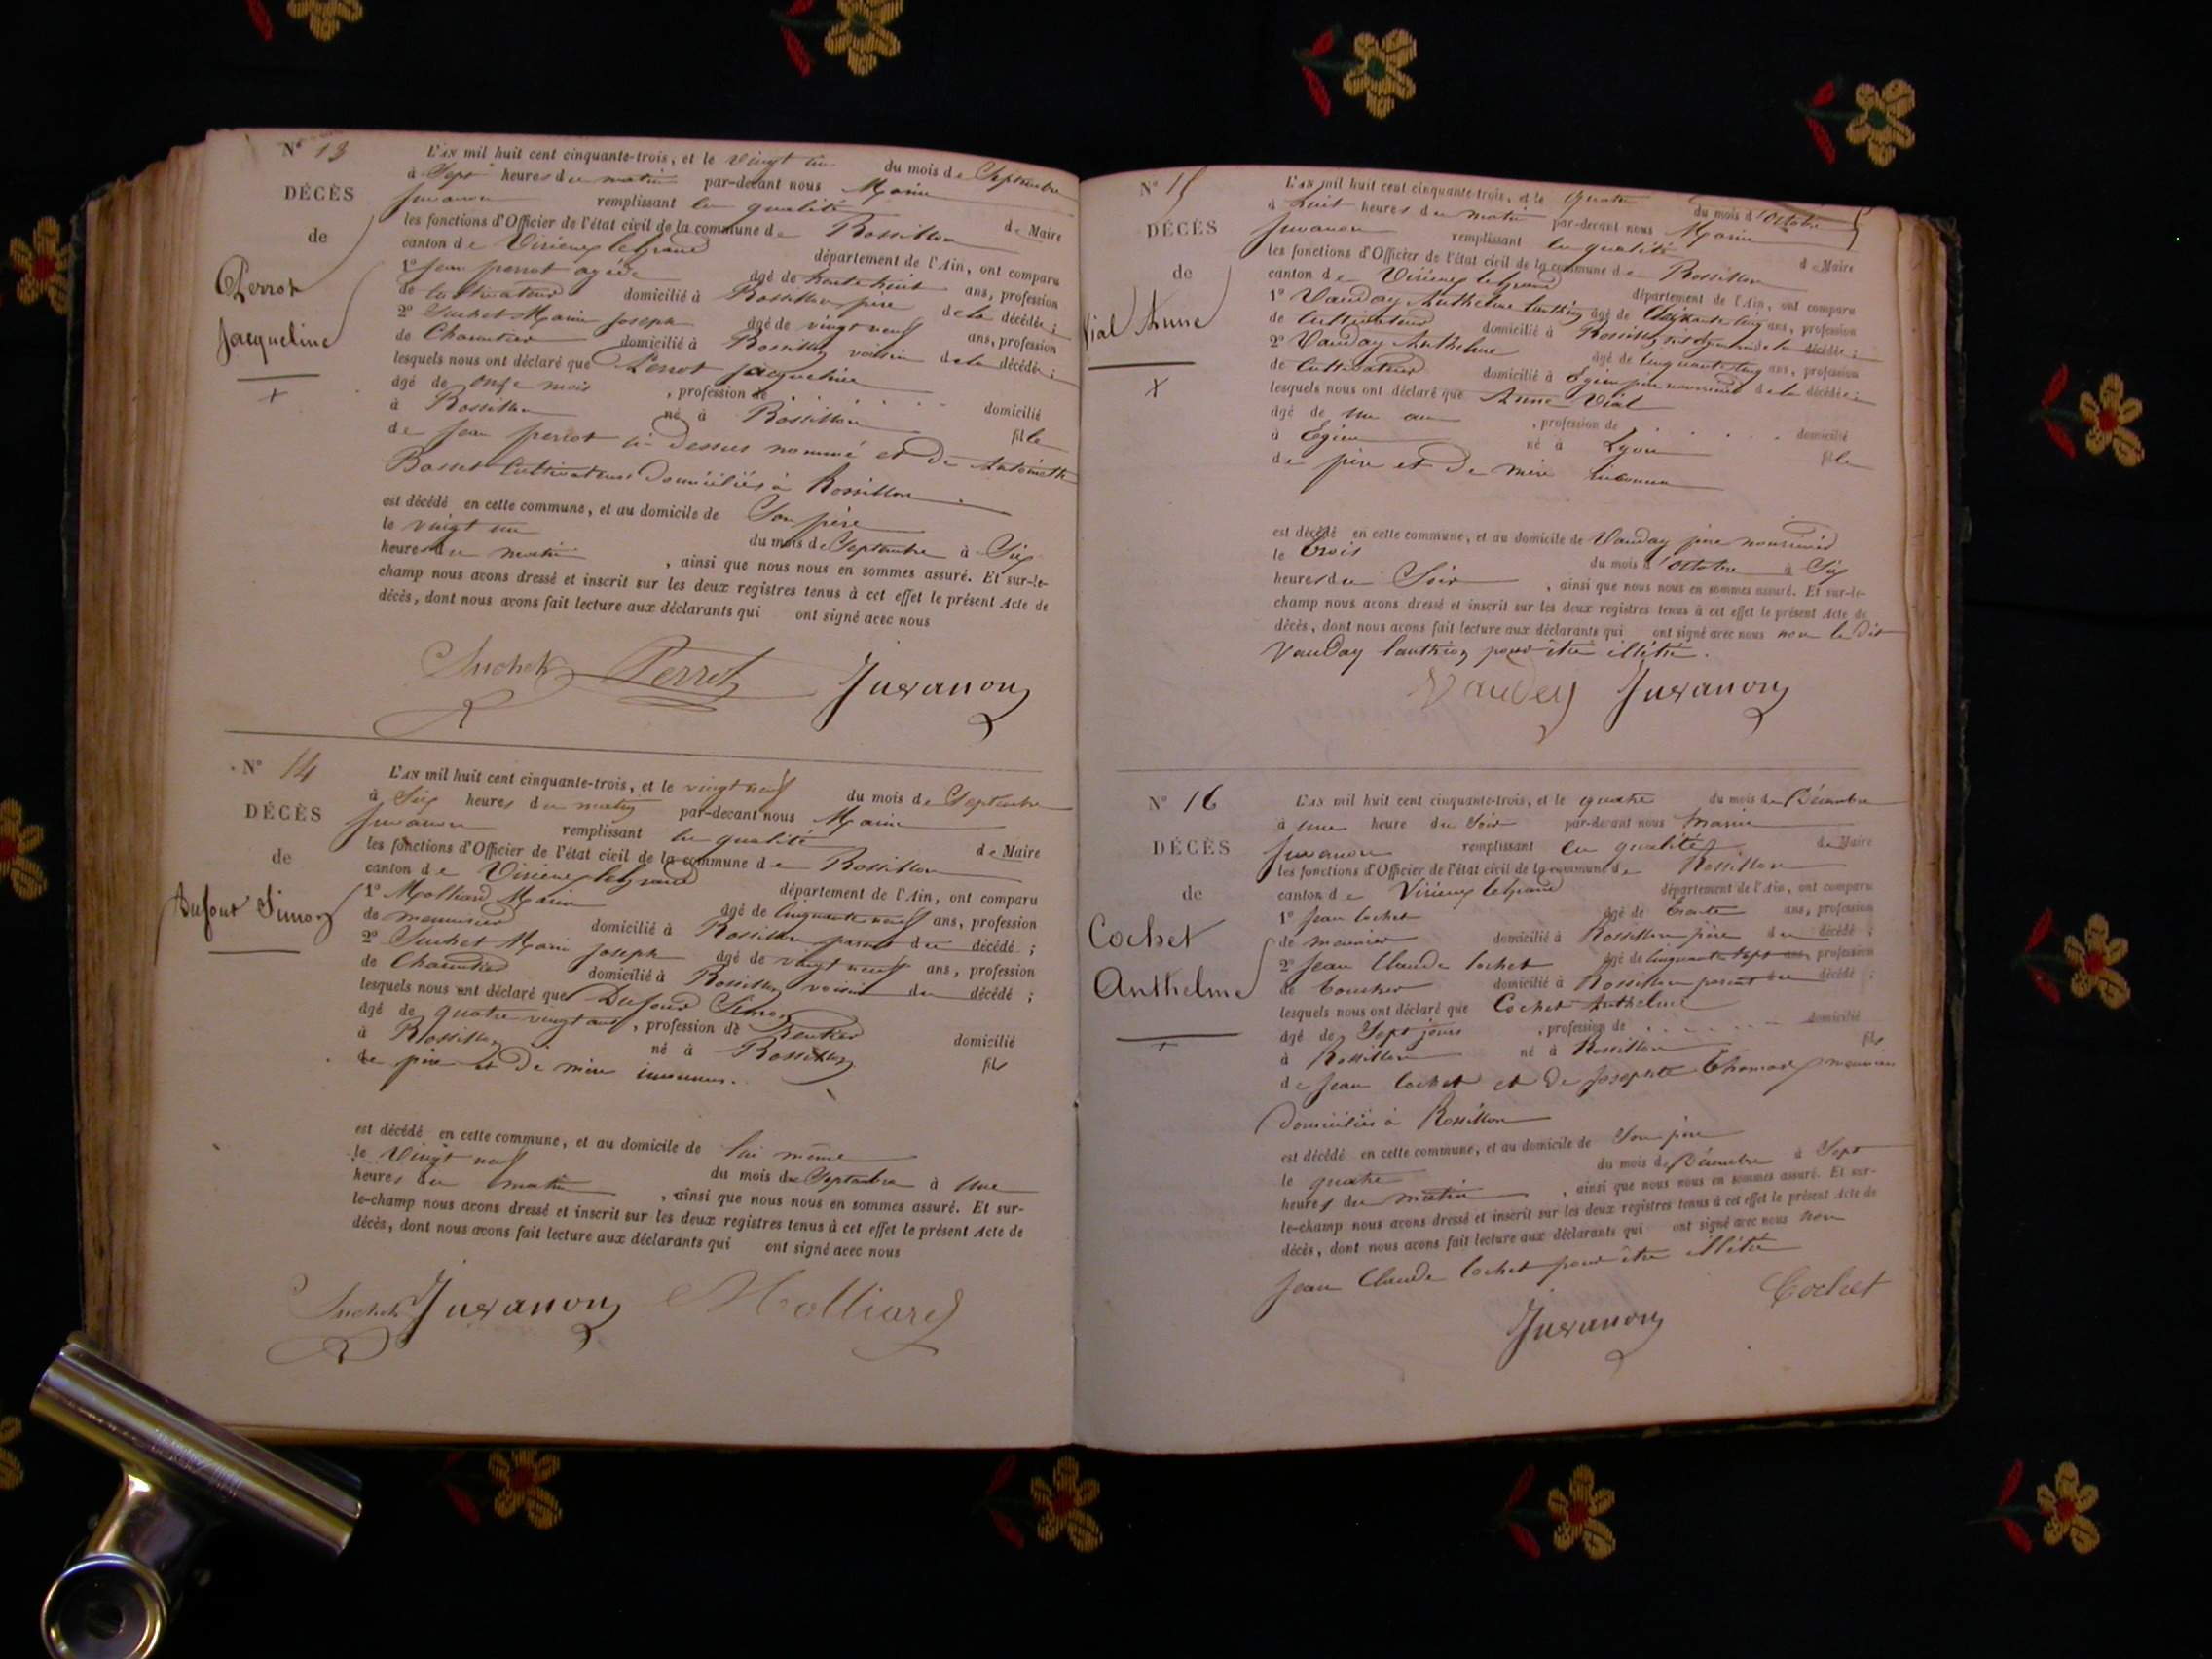 N° 13
DÉCÈS
de
Perrot
Jacqueline
L'an mil huit cent cinquante-trois, et le vingt un du mois de Septembre
à Sept heures du matin par-devant nous Marin
Juvanon remplissant en qualité de Maire
les fonctions d'Officier de l'état civil de la commune de Rossillon
canton de Virieu le grand département de l'Ain, ont comparu
1° Jean perrot âgé de trente huit ans, profession
de Cultivateur domicilié à Rossillon père de la décédée ;
2° Suchet Marin Joseph âgé de vingt neuf ans, profession
de Charcutier domicilié à Rossillon voisin de la décédée ;
lesquels nous ont déclaré que Perrot Jacqueline
âgé de onze mois , profession de domicilié
à Rossillon né à Rossillon fille
de Jean perrot ci dessus nommé et de Antoinette
Basset Cultivateurs domiciliés à Rossillon
est décédé en cette commune, et au domicile de Son père
le vingt un du mois de Septembre à Six
heures du matin , ainsi que nous nous en sommes assuré. Et sur-le-
champ nous avons dressé et inscrit sur les deux registres tenus à cet effet le présent Acte de
décès, dont nous avons fait lecture aux déclarants qui ont signé avec nous
Suchet Perrot Juvanon
N° 14
DÉCÈS
de
Dufour Simon
L'an mil huit cent cinquante-trois, et le vingt neuf du mois de Septembre
à Six heures du matin par-devant nous Marin
Juvanon remplissant en qualité de Maire
les fonctions d'Officier de l'état civil de la commune de Rossillon
canton de Virieu le grand département de l'Ain, ont comparu
1° Molliard Marin âgé de Cinquante neuf ans, profession
de menuisier domicilié à Rossillon parent du décédé ;
2° Suchet Marin Joseph âgé de vingt neuf ans, profession
de Charcutier domicilié à Rossillon voisin du décédé ;
lesquels nous ont déclaré que Dufour Simon
âgé de quatre vingt ans , profession de Rentier domicilié
à Rossillon né à Rossillon fils
de père et de mère inconnus.
est décédé en cette commune, et au domicile de lui même
le Vingt neuf du mois de Septembre à Une
heures du matin , ainsi que nous nous en sommes assuré. Et sur-
le-champ nous avons dressé et inscrit sur les deux registres tenus à cet effet le présent Acte de
décès, dont nous avons fait lecture aux déclarants qui ont signé avec nous
Suchet Juvanon Molliard
N° 15
DÉCÈS
de
Vial Anne
L'an mil huit cent cinquante-trois, et le quatre du mois d'Octobre
à huit heures du matin par-devant nous Marin
Juvanon remplissant en qualité de Maire
les fonctions d'Officier de l'état civil de la commune de Rossillon
canton de Virieu le grand département de l'Ain, ont comparu
1° Vauday Anthelme Lanthion âgé de Cinq ans, profession
de Cultivateur domicilié à Rossillon de la décédée ;
2° Vauday Anthelme âgé de Cinquante Cinq ans, profession
de Cultivateur domicilié à Egieu père nourricier de la décédée ;
lesquels nous ont déclaré que Anne Vial
âgé de un an , profession de domicilié
à Egieu né à Lyon fille
de père et de mère inconnu
est décédé en cette commune, et au domicile de Vauday père nourricier
le trois du mois d'Octobre à Six
heures du Soir , ainsi que nous nous en sommes assuré. Et sur-le-
champ nous avons dressé et inscrit sur les deux registres tenus à cet effet le présent Acte de
décès, dont nous avons fait lecture aux déclarants qui ont signé avec nous non le dit
Vauday Lanthion pour être illétré.
Vaudey Juvanon
N° 16
DÉCÈS
de
Cochet
Anthelme
L'an mil huit cent cinquante-trois, et le quatre du mois de Décembre
à une heure du Soir par-devant nous Marin
Juvanon remplissant en qualité de Maire
les fonctions d'Officier de l'état civil de la commune de Rossillon
canton de Virieu le grand département de l'Ain, ont comparu
1° Jean Cochet âgé de trente ans, profession
de meunier domicilié à Rossillon père du décédé ;
2° Jean Claude Cochet âgé de Cinquante Sept ans, profession
de domicilié à Rossillon parent du décédé ;
lesquels nous ont déclaré que Cochet Anthelme
âgé de Sept jours , profession de domicilié
à Rossillon né à Rossillon fils
de Jean Cochet et de Josephte Thomas meuniers
Domiciliés à Rossillon
est décédé en cette commune, et au domicile de Son père
le quatre du mois de Décembre à Sept
heures du matin , ainsi que nous nous en sommes assuré. Et sur-
le-champ nous avons dressé et inscrit sur les deux registres tenus à cet effet le présent Acte de
décès, dont nous avons fait lecture aux déclarants qui ont signé avec nous non
Jean Claude Cochet pour être illétré
Cochet
Juvanon